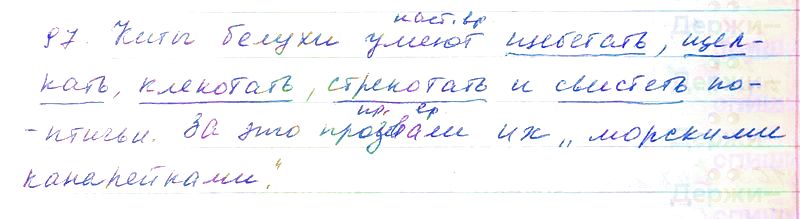 наст. вр
97. Киты белухи умеют щебетать, щел-
кать, клекотать, стрекотать и свистеть по-
пр. вр
-птичьи. За это прозвали их „морскими
канарейками."
Держи–
Держи–
спиши
Держи–